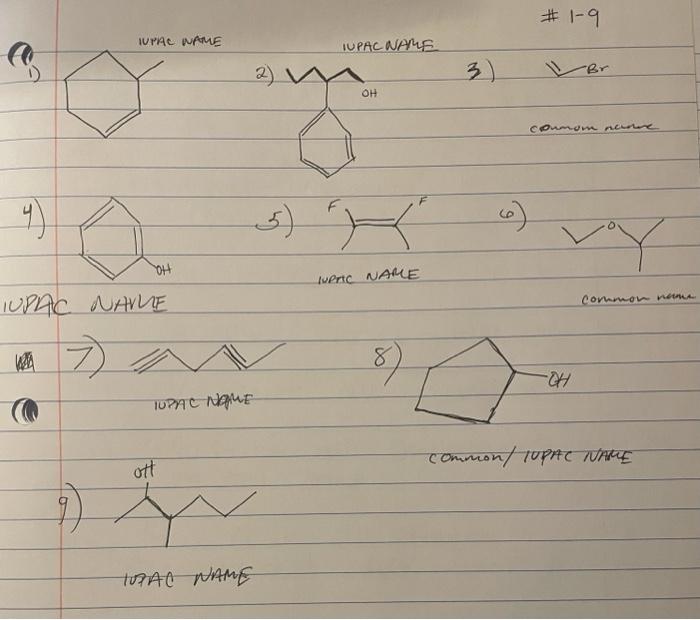 # 1-9
1) IUPAC NAME
2) IUPAC NAME OH
3) Br
common name
4) OH
IUPAC NAME
5) F F
IUPAC NAME
6) O
common name
7)
IUPAC NAME
8) OH
common/ IUPAC NAME
9) OH
IUPAC NAME